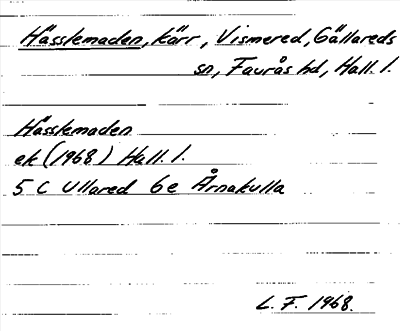 Hässlemaden, kärr, Vismered, Gällareds
sn, Faurås hd, Hall. l.
Hässlemaden
ek (1968) Hall. l.
5 C Ullared 6e Årnakulla
L. F. 1968.